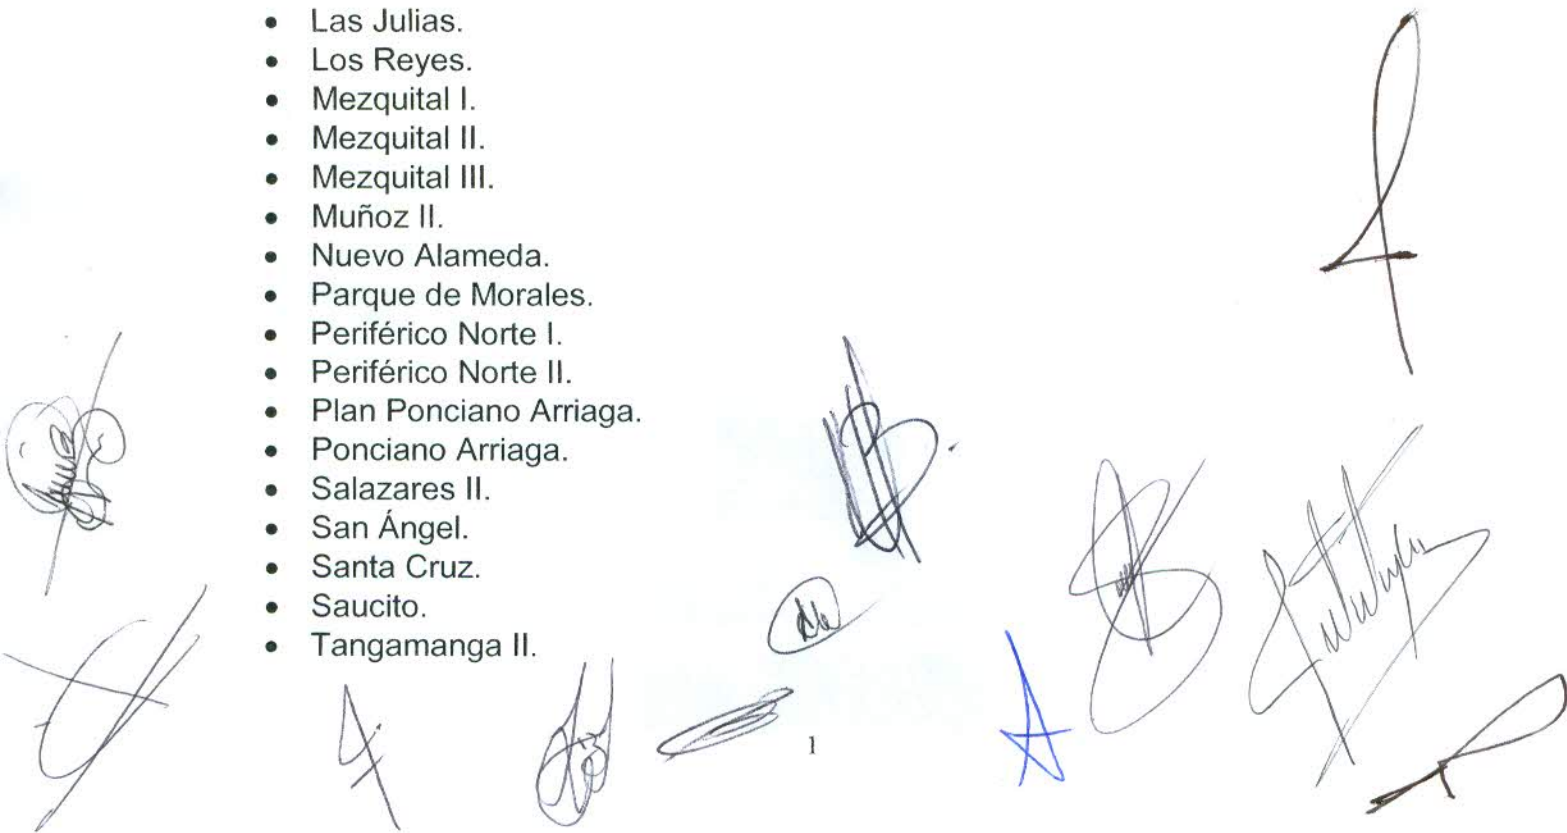 • Las Julias.
• Los Reyes.
• Mezquital I.
• Mezquital II.
• Mezquital III.
• Muñoz II.
• Nuevo Alameda.
• Parque de Morales.
• Periférico Norte I.
• Periférico Norte II.
• Plan Ponciano Arriaga.
• Ponciano Arriaga.
• Salazares II.
• San Ángel.
• Santa Cruz.
• Saucito.
• Tangamanga II.
1